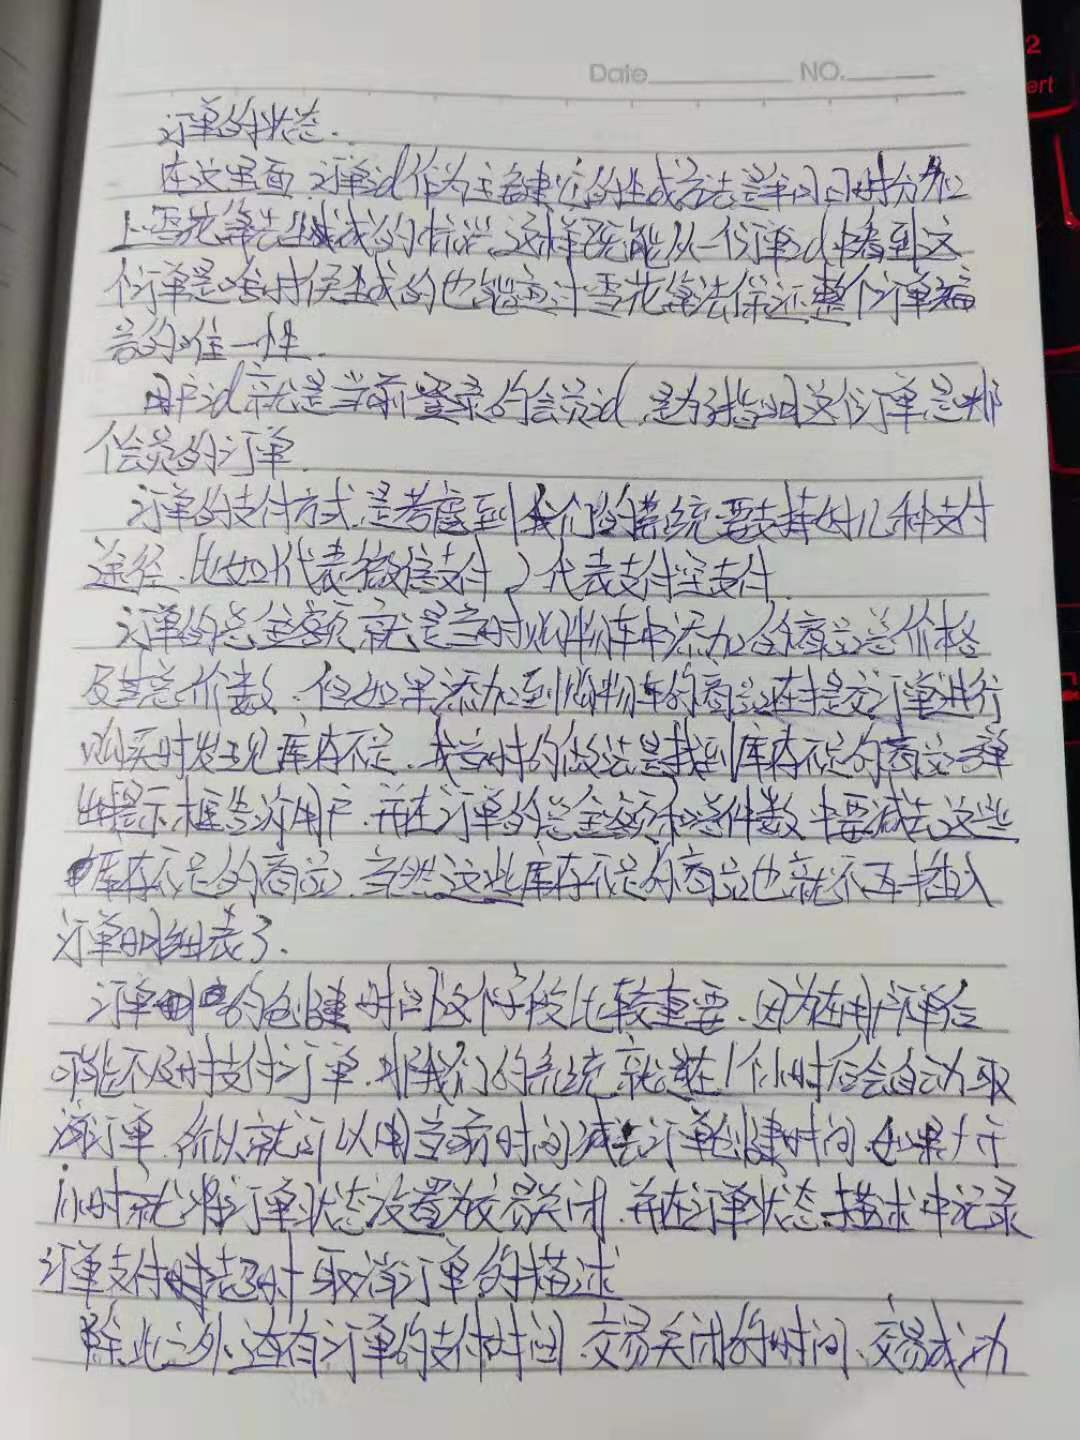 Date NO.
订单的状态.
在这里面,订单id作为主键它的生成方法是年月日时分加
上雪花算法生成的标识,这样既能从一个订单id中看到这
个订单是啥时候生成的也能通过雪花算法保证整个订单编
号的唯一性.
用户id就是当前登录的会员id,是为了指明这个订单是哪
个会员的订单.
订单的支付方式,是考虑到我们的系统要支持好几种支付
途径,比如1代表微信支付,2代表支付宝支付.
订单的总金额就是当时购物车中添加的商品总价格
及其总价数,但如果添加到购物车的商品在提交订单进行
购买时发现库存不足,我当时的做法是找到库存不足的商品弹
出提示框告诉用户,并在订单的总金额和总件数中要减去这些
库存不足的商品,当然这些库存不足的商品也就不再插入
订单明细表了.
订单的创建时间这个字段比较重要,因为在用户下单后
可能不及时支付订单,那我们的系统就在1个小时后会自动取
消订单,所以就可以用当前时间减去订单创建时间,如果大于
1小时就将订单状态设置为交易关闭,并在订单状态描述中记录
订单支付超时取消订单的描述
除此之外,还有订单的支付时间,交易关闭的时间,交易成功